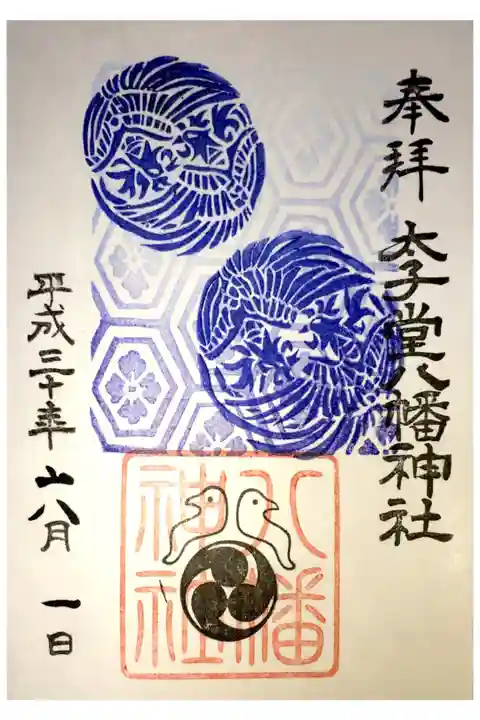 奉拝 太子堂八幡神社
八幡
神社
平成三十年 八月 一日